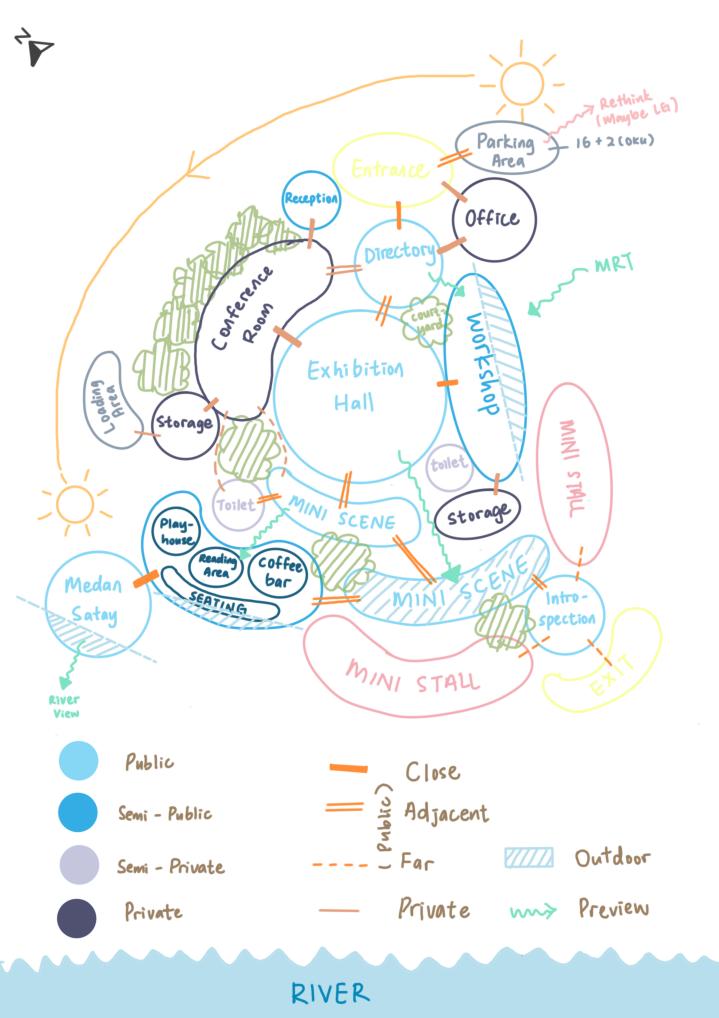 N
Rethink
(Maybe LG1)
Parking
Area
16 + 2 (OKU)
Entrance
Reception
Office
Directory
MRT
Conference
Room
Court-
yard
Workshop
Exhibition
Hall
Loading
Area
Storage
MINI STALL
toilet
Toilet
Storage
MINI SCENE
Play-
house
Reading
Area
Coffee
bar
SEATING
Medan
Satay
MINI SCENE
Intro-
spection
MINI STALL
EXIT
River
View
Public
Semi - Public
Semi - Private
Private
Close
Adjacent
Far
(Public)
Private
Outdoor
Preview
RIVER